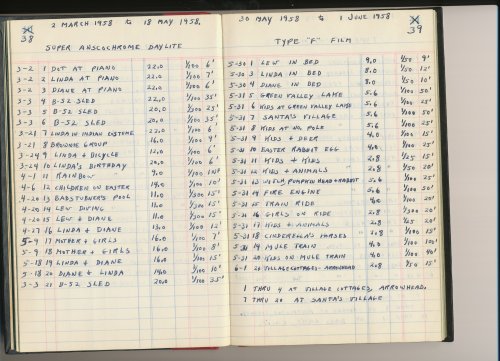 2 MARCH 1958 to 18 MAY 1958.
38
SUPER ANSCOCHROME DAYLITE
3-2 1 DOT AT PIANO 22.0 1/100 6'
3-2 2 LINDA AT PIANO 22.0 1/100 7'
3-2 3 DIANE AT PIANO 22.0 1/100 6'
3-3 4 B-52 SLED 22.0 1/100 35'
3-3 5 B-52 SLED 20.0 1/100 35'
3-3 6 B-52 SLED 20.0 1/100 35'
3-21 7 LINDA IN INDIAN COSTUME 22.0 1/100 6'
3-21 8 BROWNIE GROUP 16.0 1/100 9'
3-24 9 LINDA & BICYCLE 12.0 1/100 6'
3-24 10 LINDA'S BIRTHDAY 20.0 1/100 6'
4-1 11 RAINBOW 9.0 1/100 INF
4-6 12 CHILDREN ON EASTER 14.0 1/100 10'
4-20 13 BADSTUBNER'S POOL 11.0 15'
4-20 14 LEW DIVING 11.0 15'
4-20 15 LEW & DIANE 11.0 15'
4-27 16 LINDA & DIANE 13.0 12'
5-9 17 MOTHER & GIRLS 16.0 1/100 7'
5-9 18 MOTHER & GIRLS 16.0 1/100 8'
5-18 19 LINDA & DIANE 16.0 1/100 15'
5-18 20 DIANE & LINDA 14.0 1/100 10'
3-3 21 B-52 SLED 20.0 1/100 35'
30 MAY 1958 to 1 JUNE 1958
39
TYPE "F" FILM
5-30 1 LEW IN BED 8.0 1/50 9'
5-30 3 LINDA IN BED 8.0 1/50 12'
5-30 4 DIANE IN BED 8.0 1/50 10'
5-31 5 GREEN VALLEY LAKE 5.6 1/100 50'
5-31 6 KIDS AT GREEN VALLEY LAKE 5.6 1/100 25'
5-31 7 SANTA'S VILLAGE 5.6 1/100
5-31 8 KIDS AT NO. POLE 5.6 1/100 25'
5-31 9 KIDS & DEER 4.0 1/100 15'
5-31 10 EASTER RABBIT EGG 4.0 1/100
5-31 11 KIDS & KIDS 2.8 1/25 15'
5-31 12 KIDS & ANIMALS 2.8 1/100 20'
5-31 13 PUMPKIN HEAD & RABBIT 5.6 1/100 25'
5-31 14 FIRE ENGINE 5.6 1/100 50'
5-31 15 TRAIN RIDE 4.0 1/100
5-31 16 GIRLS ON RIDE 2.8 20'
5-31 17 KIDS & ANIMALS 2.8 1/50 20'
5-31 18 CINDERELLA'S HORSES 2.8 1/50 20'
5-31 19 MULE TRAIN 4.0 1/100
5-31 20 KIDS ON MULE TRAIN 4.0 1/100 40'
6-1 21 VILLAGE COTTAGES - ARROWHEAD 2.8 1/50 15'
1 THRU 4 AT VILLAGE COTTAGES, ARROWHEAD,
7 THRU 20 AT SANTA'S VILLAGE